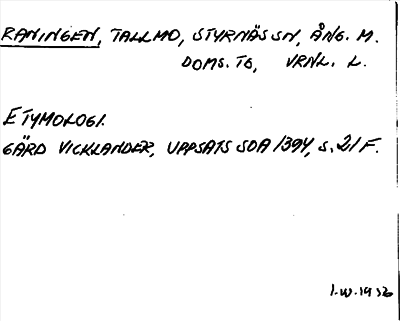 RANINGEN, TALLMO, STYRNÄS SN, ÅNG. M.
DOMS. TG, VRNL. L.
ETYMOLOGI.
GÄRD VICKLANDER, UPPSATS SOA 1394, S. 21 F.